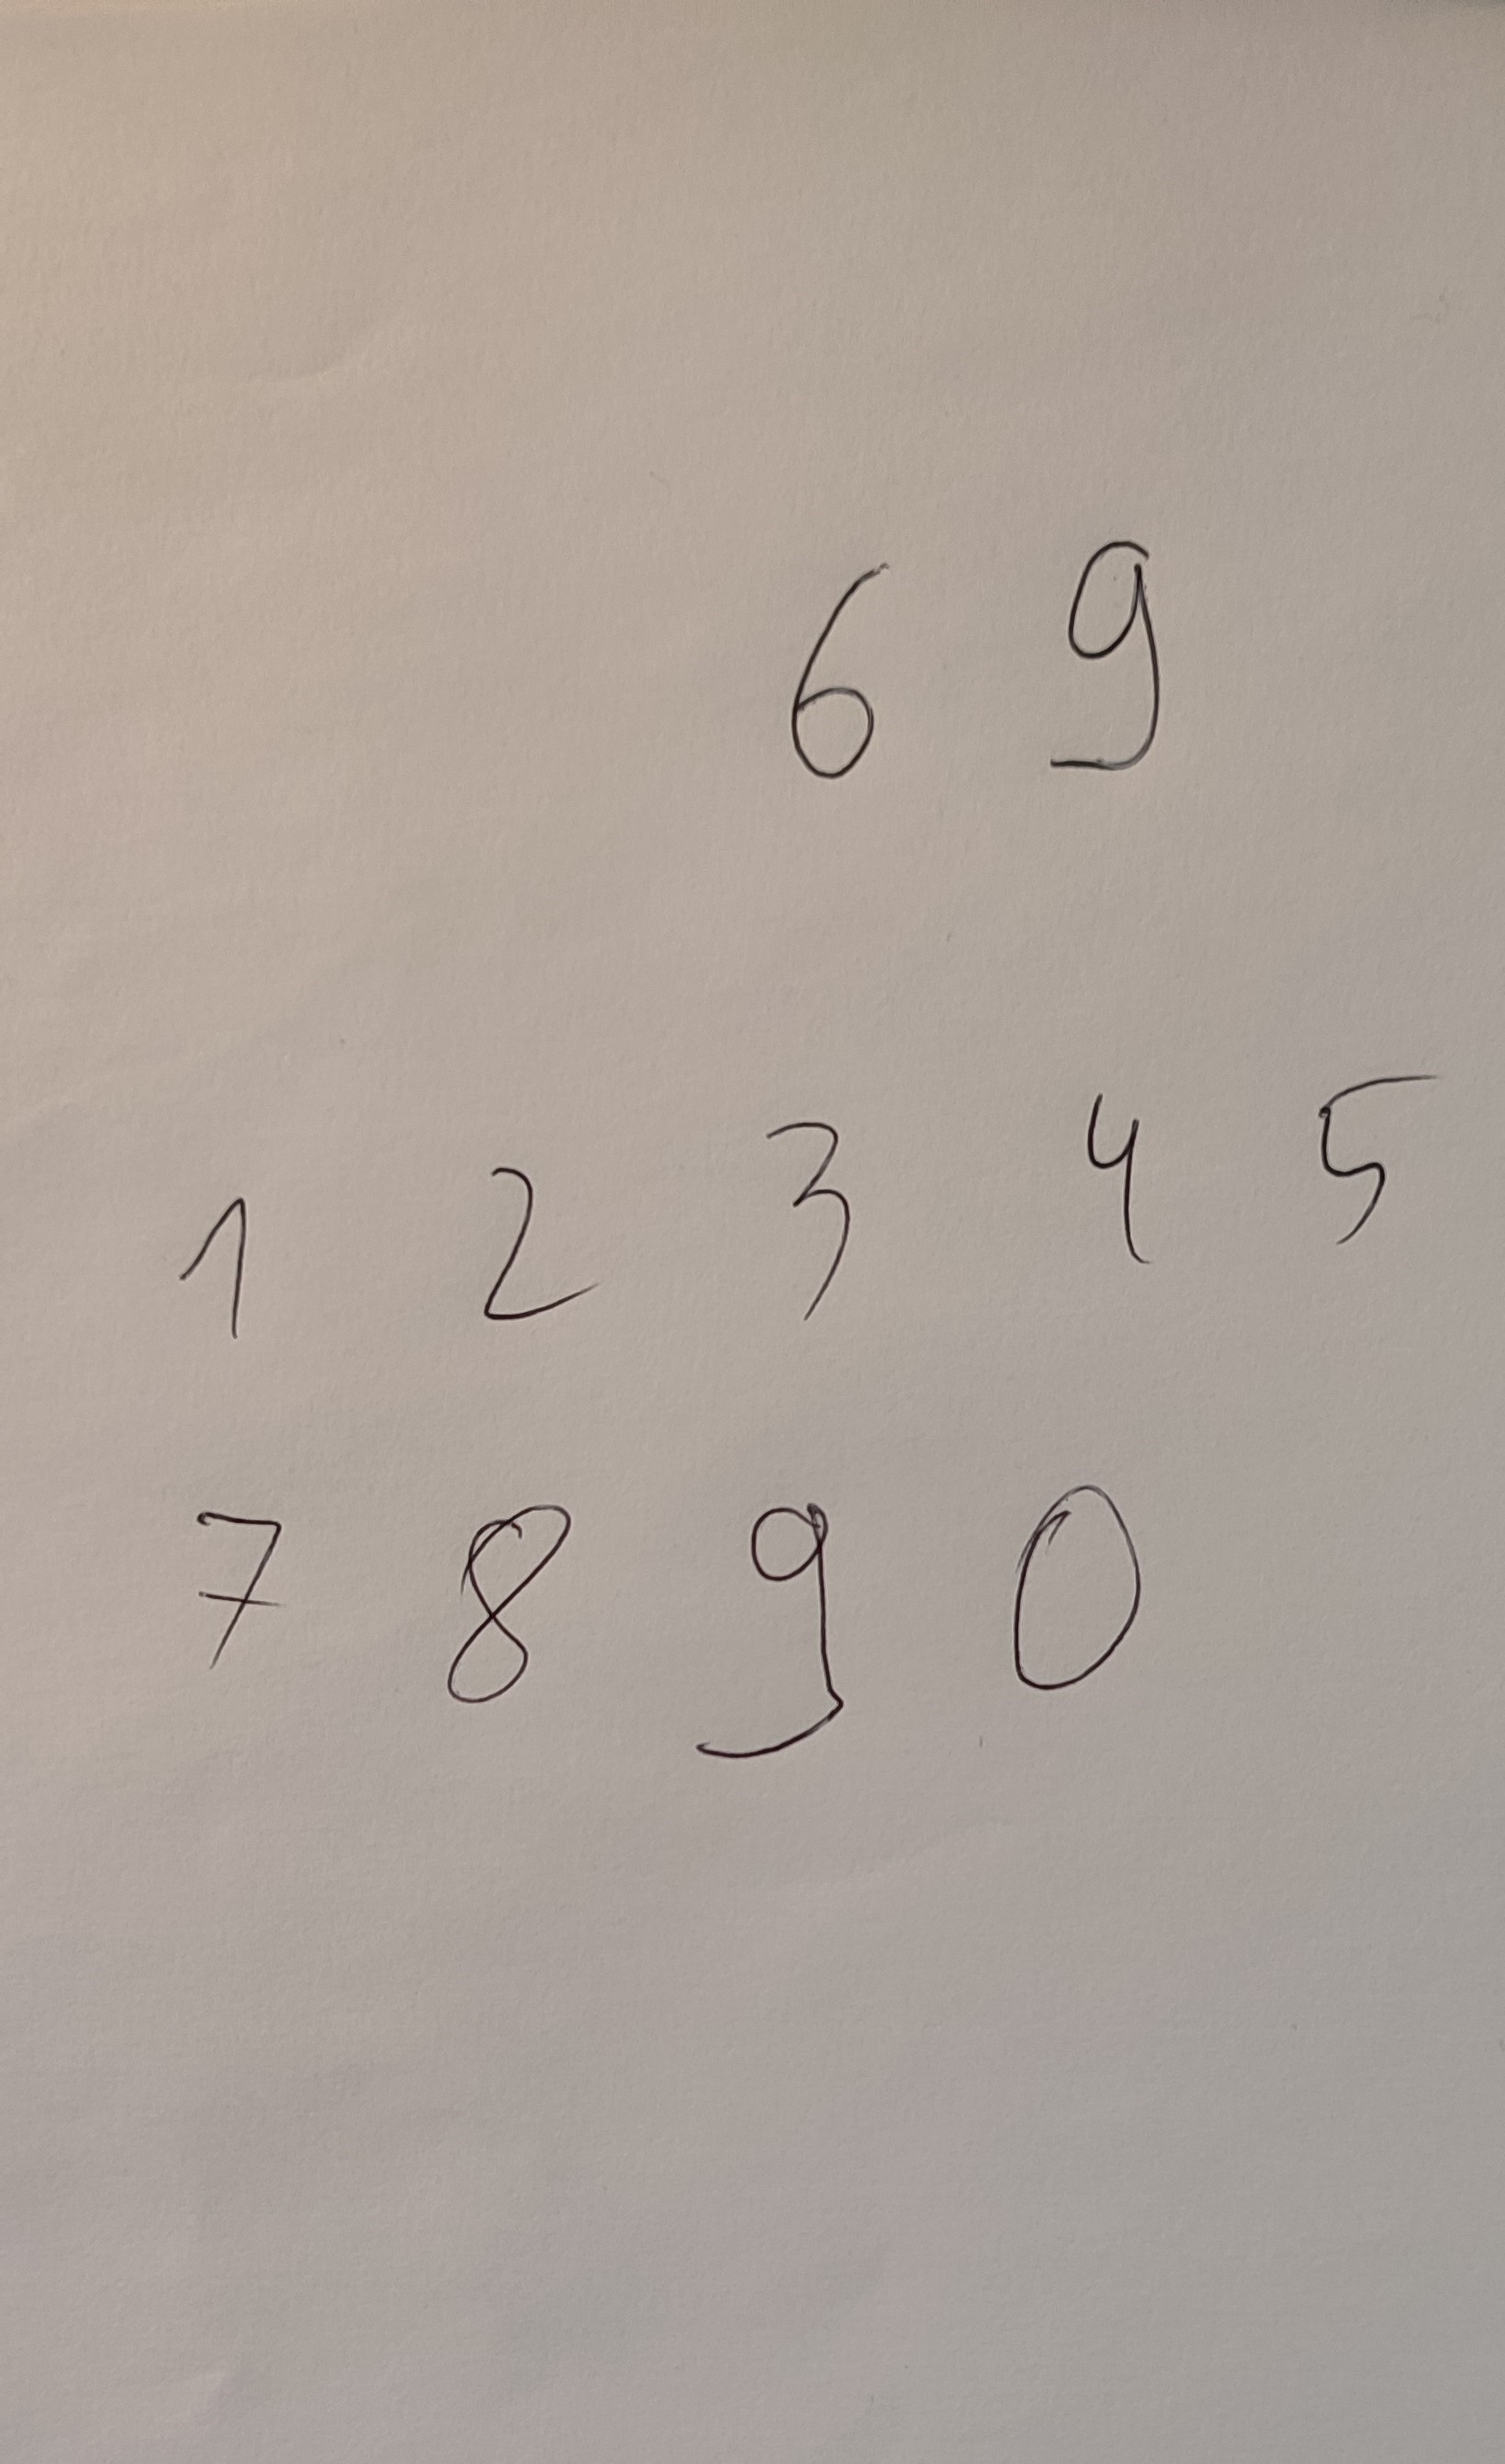 6 9
1 2 3 4 5
7 8 9 0